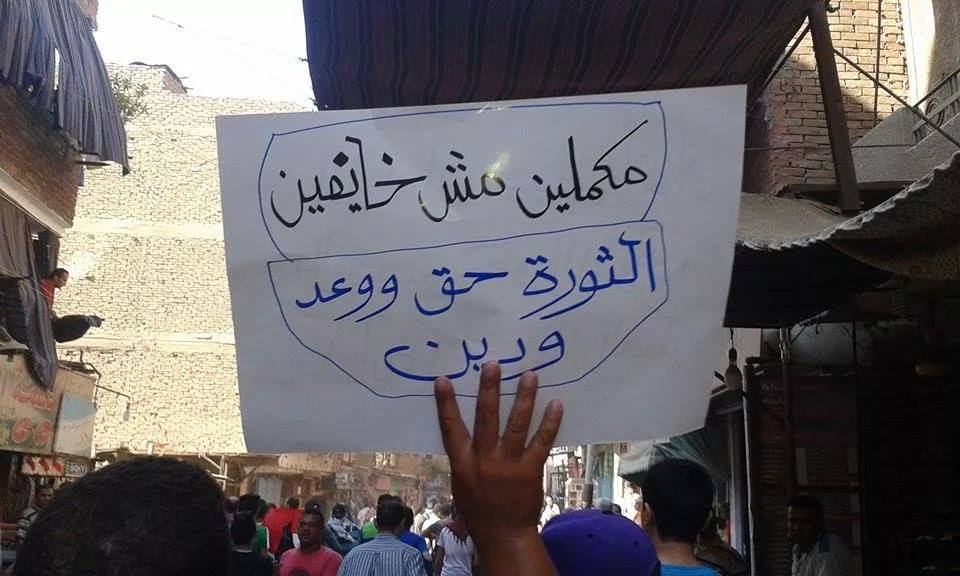 مكملين مش خايفين
الثورة حق ووعد
ودين
SONY